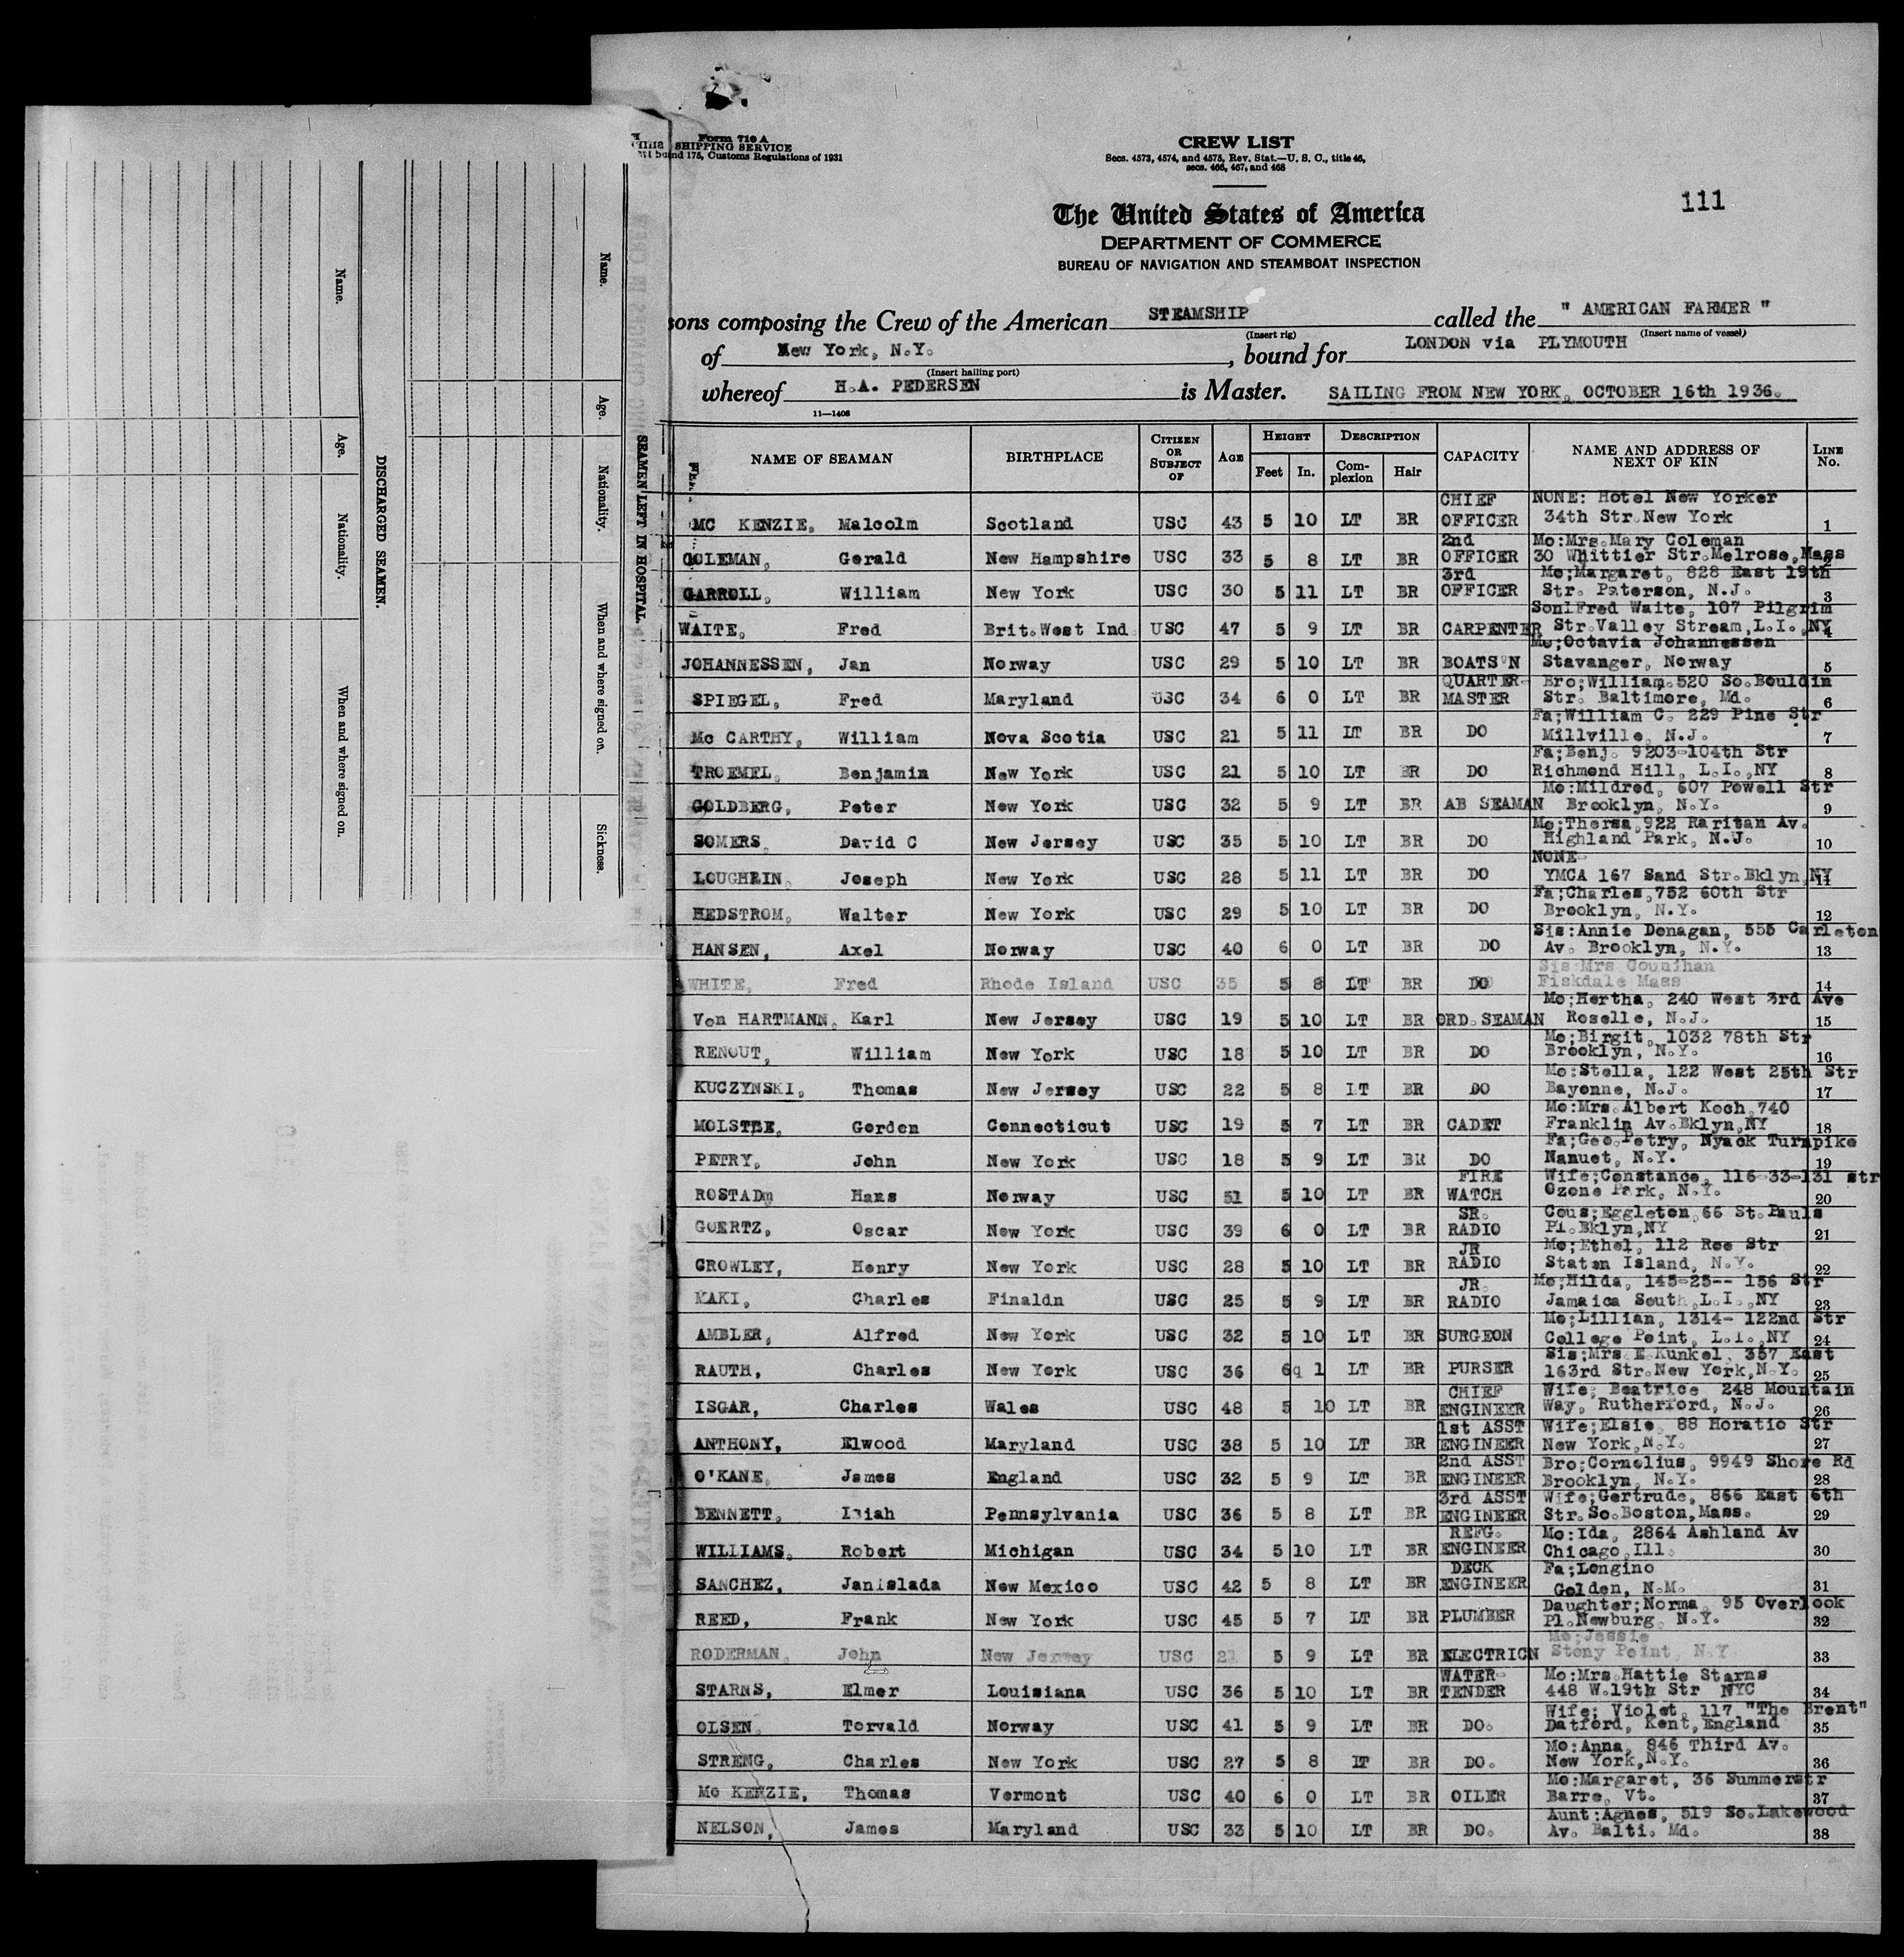 Form 710 A
SHIPPING SERVICE
and 175, Customs Regulations of 1931
CREW LIST
Secs. 4573, 4574, and 4575, Rev. Stat.—U. S. C., title 46,
secs. 466, 467, and 468
111
The United States of America
DEPARTMENT OF COMMERCE
BUREAU OF NAVIGATION AND STEAMBOAT INSPECTION
sons composing the Crew of the American STEAMSHIP called the " AMERICAN FARMER "
(Insert rig) (Insert name of vessel)
of New York, N.Y. , bound for LONDON via PLYMOUTH
(Insert hailing port)
whereof H.A. PEDERSEN is Master. SAILING FROM NEW YORK, OCTOBER 16th 1936.
11—1406
NAME OF SEAMAN BIRTHPLACE CITIZEN OR SUBJECT OF AGE HEIGHT Feet In. DESCRIPTION Complexion Hair CAPACITY NAME AND ADDRESS OF NEXT OF KIN LINE No.
MC KENZIE, Malcolm Scotland USC 43 5 10 LT BR CHIEF OFFICER NONE: Hotel New Yorker 34th Str.New York 1
COLEMAN, Gerald New Hampshire USC 33 5 8 LT BR 2nd OFFICER Mo:Mrs.Mary Coleman 30 Whittier Str.Melrose,Mass 2
GARROLL, William New York USC 30 5 11 LT BR 3rd OFFICER Mo;Margaret, 828 East 19th Str. Paterson, N.J. 3
WAITE, Fred Brit.West Ind USC 47 5 9 LT BR CARPENTER SonlFred Waite, 107 Pilgrim Str.Valley Stream,L.I.,NY 4
JOHANNESSEN, Jan Norway USC 29 5 10 LT BR BOATS'N Mo;Octavia Johannessen Stavanger, Norway 5
SPIEGEL, Fred Maryland USC 34 6 0 LT BR QUARTER-MASTER Bro;William.520 So.Bouldin Str. Baltimore, Md. 6
Mc CARTHY, William Nova Scotia USC 21 5 11 LT BR DO Fa;William C. 229 Pine Str Millville, N.J. 7
TROEMEL, Benjamin New York USC 21 5 10 LT BR DO Fa;Benj. 9203-104th Str Richmond Hill, L.I.,NY 8
GOLDBERG, Peter New York USC 32 5 9 LT BR AB SEAMAN Mo:Mildred, 607 Powell Str Brooklyn, N.Y. 9
SOMERS, David C New Jersey USC 35 5 10 LT BR DO Mo;Thersa,922 Raritan Av. Highland Park, N.J. 10
LOUGHLIN, Joseph New York USC 28 5 11 LT BR DO NONE- YMCA 167 Sand Str.Bklyn,NY 11
HEDSTROM, Walter New York USC 29 5 10 LT BR DO Fa;Charles,752 60th Str Brooklyn, N.Y. 12
HANSEN, Axel Norway USC 40 6 0 LT BR DO Sis:Annie Donagan, 555 Carleton Av. Brooklyn, N.Y. 13
WHITE, Fred Rhode Island USC 35 5 8 LT BR DO Sis Mrs Counihan Fiskdale Mass 14
Von HARTMANN, Karl New Jersey USC 19 5 10 LT BR ORD.SEAMAN Mo;Hertha, 240 West 3rd Ave Roselle, N.J. 15
RENOUT, William New York USC 18 5 10 LT BR DO Mo;Birgit, 1032 78th Str Brooklyn, N.Y. 16
KUCZYNSKI, Thomas New Jersey USC 22 5 8 LT BR DO Mo:Stella, 122 West 25th Str Bayonne, N.J. 17
MOLSTRE, Gordon Connecticut USC 19 5 7 LT BR CADET Mo:Mrs.Albert Koch,740 Franklin Av.Bklyn,NY 18
PETRY, John New York USC 18 5 9 LT BR DO Fa;Geo.Petry, Nyack Turnpike Nanuet, N.Y. 19
ROSTAD, Hans Norway USC 51 5 10 LT BR FIRE WATCH Wife;Constance, 116-33-131 str Ozone Park, N.Y. 20
GOERTZ, Oscar New York USC 39 6 0 LT BR SR. RADIO Cous;Eggleton,66 St.Pauls Pl.Bklyn,NY 21
CROWLEY, Henry New York USC 28 5 10 LT BR JR RADIO Mo;Ethel, 112 Roe Str Staten Island, N.Y. 22
MAKI, Charles Finaldn USC 25 5 9 LT BR JR. RADIO Mo;Hilda, 145-25-- 156 Str Jamaica South,L.I.,NY 23
AMBLER, Alfred New York USC 32 5 10 LT BR SURGEON Mo;Lillian, 1314- 122nd Str College Point, L.I.,NY 24
RAUTH, Charles New York USC 36 6q 1 LT BR PURSER Sis;Mrs E.Kunkel, 357 East 163rd Str.New York,N.Y. 25
ISGAR, Charles Wales USC 48 5 10 LT BR CHIEF ENGINEER Wife; Beatrice 248 Mountain Way, Rutherford, N.J. 26
ANTHONY, Elwood Maryland USC 38 5 10 LT BR 1st ASST ENGINEER Wife;Elsie, 88 Horatio Str New York,N.Y. 27
O'KANE, James England USC 32 5 9 LT BR 2nd ASST ENGINEER Bro;Cornelius, 9949 Shore Rd Brooklyn, N.Y. 28
BENNETT, Isiah Pennsylvania USC 36 5 8 LT BR 3rd ASST ENGINEER Wife;Gertrude, 866 East 6th Str.So.Boston,Mass. 29
WILLIAMS, Robert Michigan USC 34 5 10 LT BR REFG. ENGINEER Mo:Ida, 2864 Ashland Av Chicago,Ill. 30
SANCHEZ, Janislada New Mexico USC 42 5 8 LT BR DECK ENGINEER Fa;Longino Golden, N.M. 31
REED, Frank New York USC 45 5 7 LT BR PLUMBER Daughter;Norma, 95 Overlook Pl.Newburg, N.Y. 32
RODERMAN, John New Jersey USC 5 9 LT BR ELECTRICN Mo;Jessie Stony Point, N.Y 33
STARNS, Elmer Louisiana USC 36 5 10 LT BR WATER-TENDER Mo:Mrs.Hattie Starns 448 W.19th Str NYC 34
OLSEN, Torvald Norway USC 41 5 9 LT BR DO. Wife; Violet, 117 "The Brent" Datford, Kent,England 35
STRENG, Charles New York USC 27 5 8 LT BR DO. Mo:Anna, 846 Third Av. New York,N.Y. 36
Mc KENZIE, Thomas Vermont USC 40 6 0 LT BR OILER Mo:Margaret, 36 Summerstr Barre, Vt. 37
NELSON, James Maryland USC 33 5 10 LT BR DO. Aunt:Agnes, 519 So.Lakewood Av. Balti. Md. 38
SEAMEN LEFT IN HOSPITAL.
Name. Age. Nationality. When and where signed on. Sickness.
DISCHARGED SEAMEN.
Name. Age. Nationality. When and where signed on.